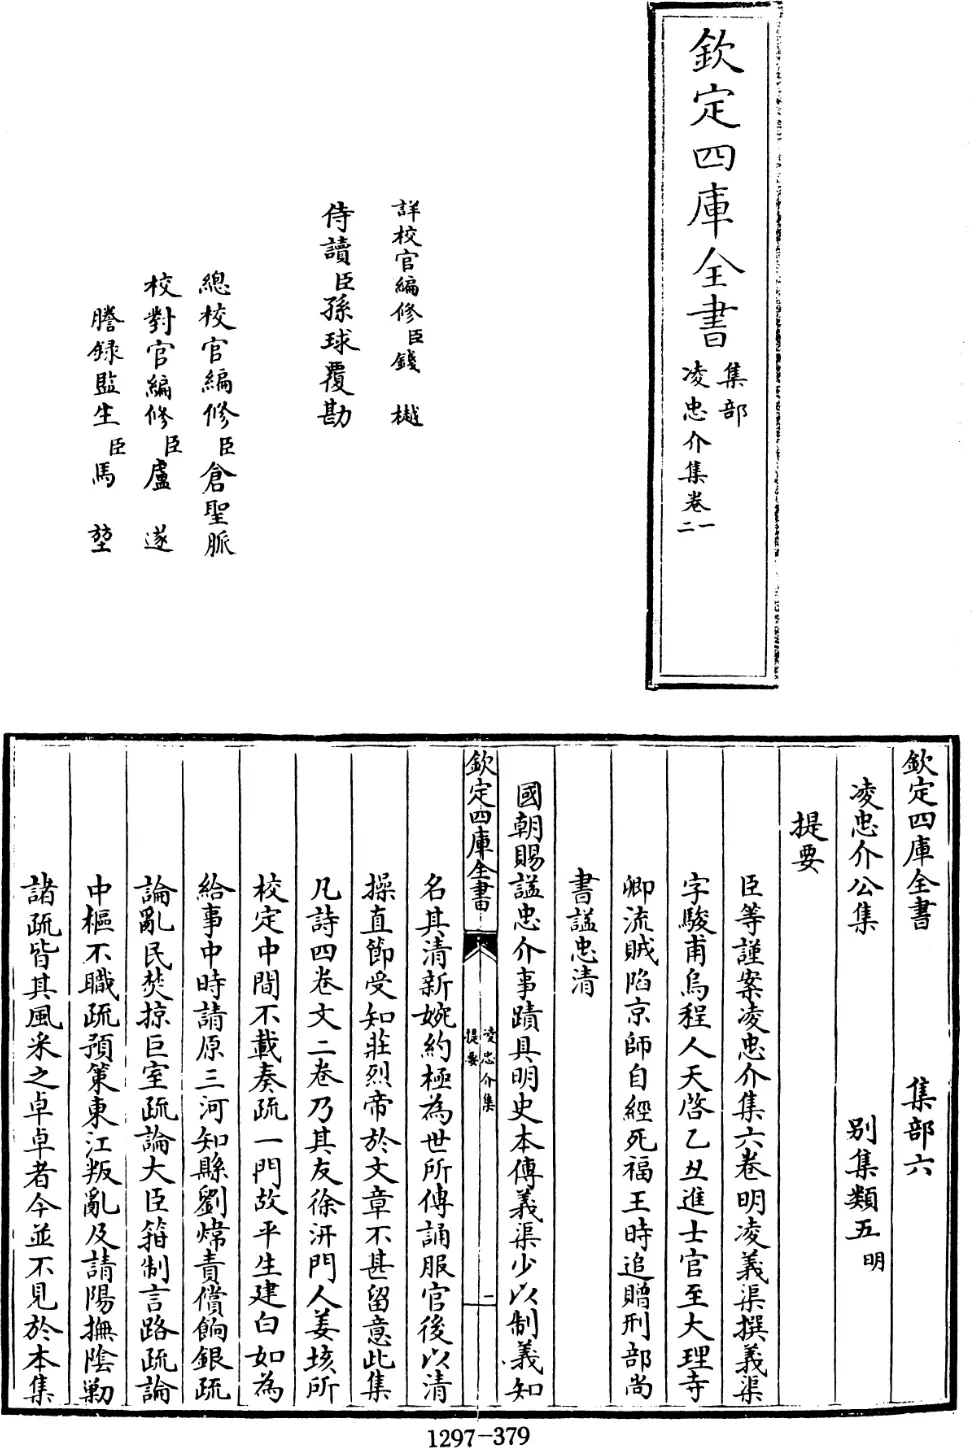 欽定四庫全書
集部
凌忠介集卷一
二
詳校官編修臣錢樾
侍讀臣孫球覆勘
總校官編修臣倉聖脈
校對官編修臣盧遂
謄錄監生臣馬堃
欽定四庫全書 集部六
凌忠介公集 別集類五明
提要
臣等謹案凌忠介集六卷明凌義渠撰義渠
字駿甫烏程人天啓乙丑進士官至大理寺
卿流賊陷京師自經死福王時追贈刑部尚
書謚忠清
國朝賜謚忠介事蹟具明史本傳義渠少以制義知
欽定四庫全書
凌忠介集
提要
一
名其清新婉約極為世所傳誦服官後以清
操直節受知莊烈帝於文章不甚留意此集
凡詩四卷文二卷乃其友徐汧門人姜垓所
校定中間不載奏疏一門故平生建白如為
給事中時請原三河知縣劉煒責償餉銀疏
論亂民焚掠巨室疏論大臣箝制言路疏論
中樞不職疏預策東江叛亂及請陽撫陰勦
諸疏皆其風采之卓卓者今並不見於本集
1297—379